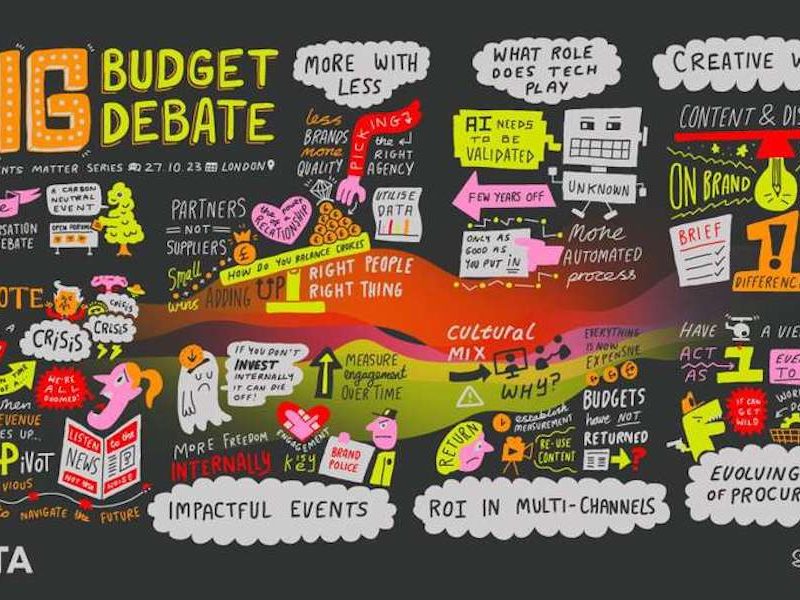 IG
BUDGET
DEBATE
ENTS MATTER SERIES 27.10.23 LONDON
A CARBON
NEUTRAL
EVENT
OPEN FORUM
SATION
DEBATE
MORE WITH
LESS
less
BRANDS
more
QUALITY
PICKING
the
RIGHT
AGENCY
UTILISE
DATA
PARTNERS
NOT
SUPPLIERS
the power of
RELATIONSHIP
£
HOW DO YOU BALANCE CHOICES
Small
wins
ADDING UP
RIGHT PEOPLE
RIGHT THING
WHAT ROLE
DOES TECH
PLAY
AI NEEDS
TO BE
VALIDATED
UNKNOWN
FEW YEARS OFF
ONLY AS
GOOD AS
YOU PUT IN
More
AUTOMATED
process
CREATIVE V
CONTENT & DIS
ON BRAND
£
BRIEF
DIFFERENC
OTE
A
CRISIS
CRISIS
CRISIS
WE'RE
ALL
DOOMED!
when
REVENUE
ES UP..
PIVOT
VIOUS
to NAVIGATE the FUTURE
LISTEN to the
NEWS
NOT the NOISE
IF YOU DON'T
INVEST
INTERNALLY
IT CAN DIE
OFF!
MEASURE
engagement
OVER TIME
MORE FREEDOM
INTERNALLY
ENGAGEMENT
is
key
BRAND
POLICE
IMPACTFUL EVENTS
CULTURAL
MIX
WHY?
EVERYTHING
IS NOW
EXPENSIVE
£ £ £
BUDGETS
have NOT
RETURNED
?
establish
MEASUREMENT
RETURN
RE-USE
CONTENT
ROI IN MULTI-CHANNELS
HAVE A VIE
ACT
AS 1
EVER
TO
IT CAN
GET
WILD
WOR
EVOLVING
OF PROCUR
TA